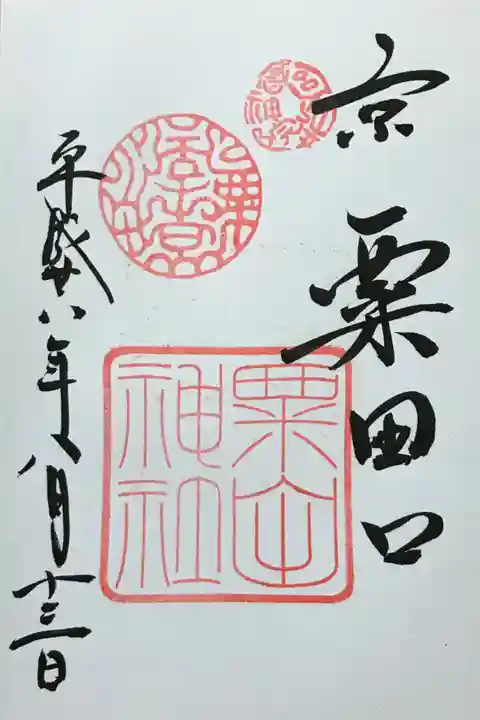 京 粟田口
粟田
神社
平成廿八年八月十三日